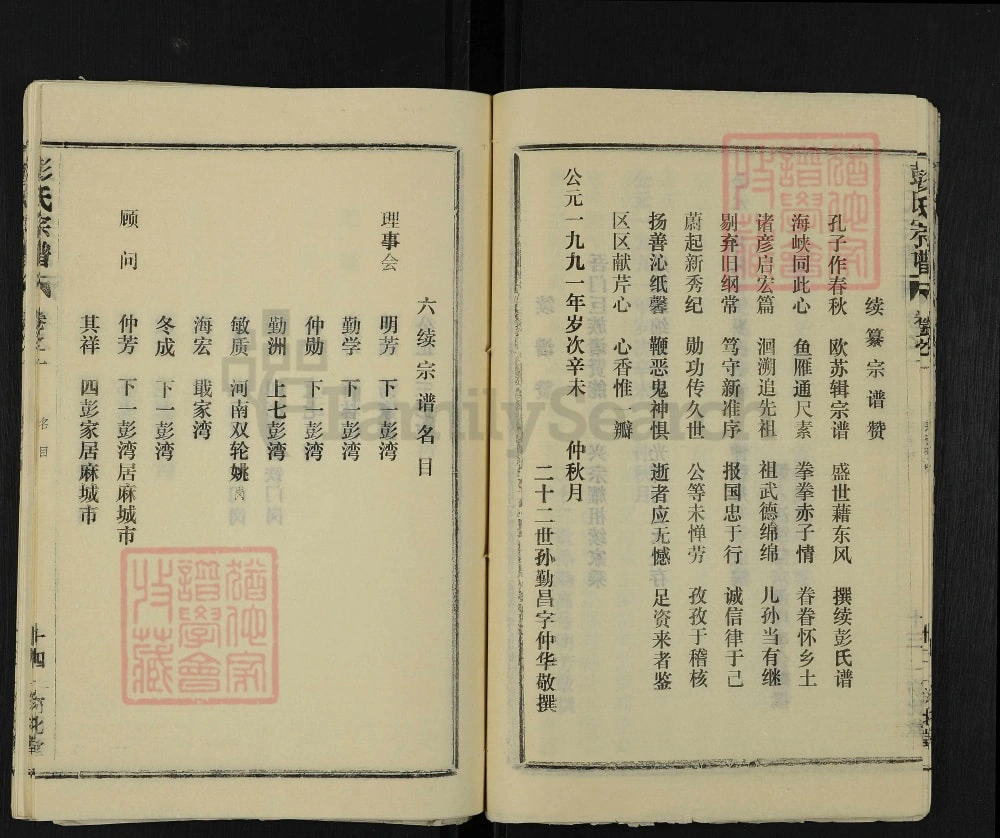 续纂宗谱赞
孔子作春秋 欧苏辑宗谱 盛世藉东风 撰续彭氏谱
海峡同此心 鱼雁通尺素 拳拳赤子情 眷眷怀乡土
诸彦启宏篇 洄溯追先祖 祖武德绵绵 儿孙当有继
剔弃旧纲常 笃守新准序 报国忠于行 诚信律于己
蔚起新秀纪 勋功传久世 公等未惮劳 孜孜于稽核
扬善沁纸馨 鞭恶鬼神惧 逝者应无憾 足资来者鉴
区区献芹心 心香惟 瓣
公元一九九一年岁次辛未 仲秋月
二十二世孙勤昌字仲华敬撰
彭氏宗谱
六续宗谱名目
理事会 明芳 下一彭湾
勤学 下一彭湾
仲勋 下一彭湾
勤洲 上七彭湾
敏质 河南双轮姚
海宏 戢家湾
冬成 下一彭湾
顾问 仲芳 下一彭湾居麻城市
其祥 四彭家居麻城市
彭氏宗谱 卷之一 名目 十四
猶他家
譜學會
收藏
猶他家
譜學會
收藏
FamilySearch